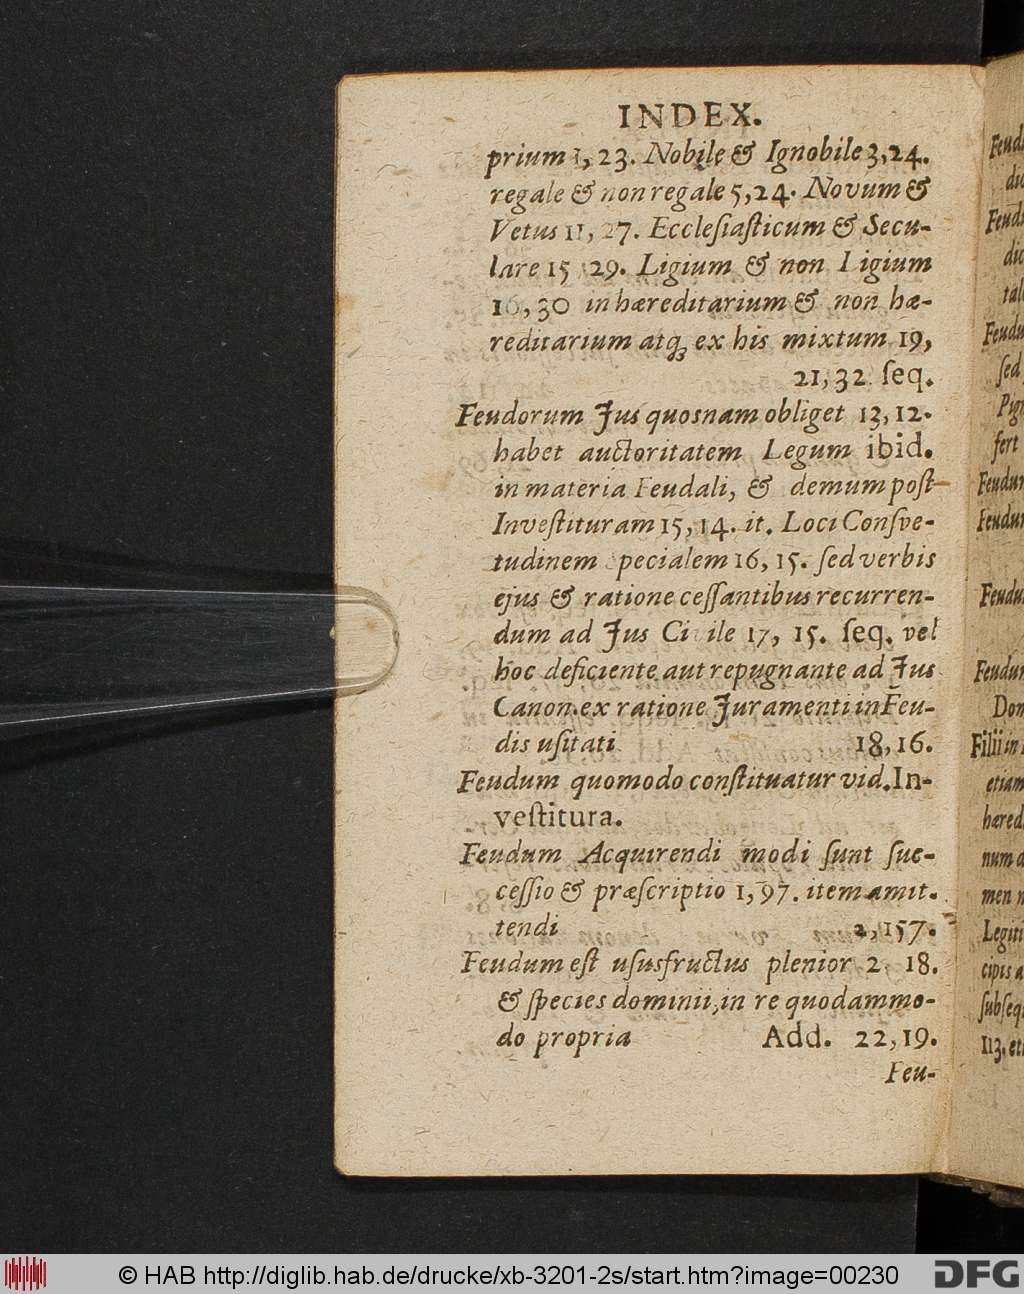 INDEX.
prium 1, 23. Nobile & Ignobile 3, 24.
regale & non regale 5, 24. Novum &
Vetus 11, 27. Eccleſiaſticum & Secu-
lare 15 29. Ligium & non Ligium
16, 30 in hæreditarium & non hæ-
reditarium atq; ex his mixtum 19,
21, 32. ſeq.
Feudorum Jus quosnam obliget 13, 12.
habet auctoritatem Legum ibid.
in materia Feudali, & demum poſt
Inveſtituram 15, 14. it. Loci Conſve-
tudinem specialem 16, 15. ſed verbis
ejus & ratione ceſſantibus recurren-
dum ad Jus Civile 17, 15. ſeq. vel
hoc deficiente aut repugnante ad Jus
Canon. ex ratione Juramenti in Feu-
dis uſitati 18, 16.
Feudum quomodo conſtituatur vid. In-
veſtitura.
Feudum Acquirendi modi ſunt ſuc-
ceſſio & præſcriptio 1, 97. item amit-
tendi 2, 157.
Feudum eſt uſusfructus plenior 2 18.
& ſpecies dominii, in re quodammo-
do propria Add. 22, 19.
Feu-
Feud
dic
Feud
dic
tal
Feud
ſed
Pig
fert
Feudu
Feudu
Feudu
Feudu
Dom
Filii in
etiam
hæred
num a
men n
Legiti
cipis a
ſubſeq
113. et
© HAB http://diglib.hab.de/drucke/xb-3201-2s/start.htm?image=00230
HAB
DFG